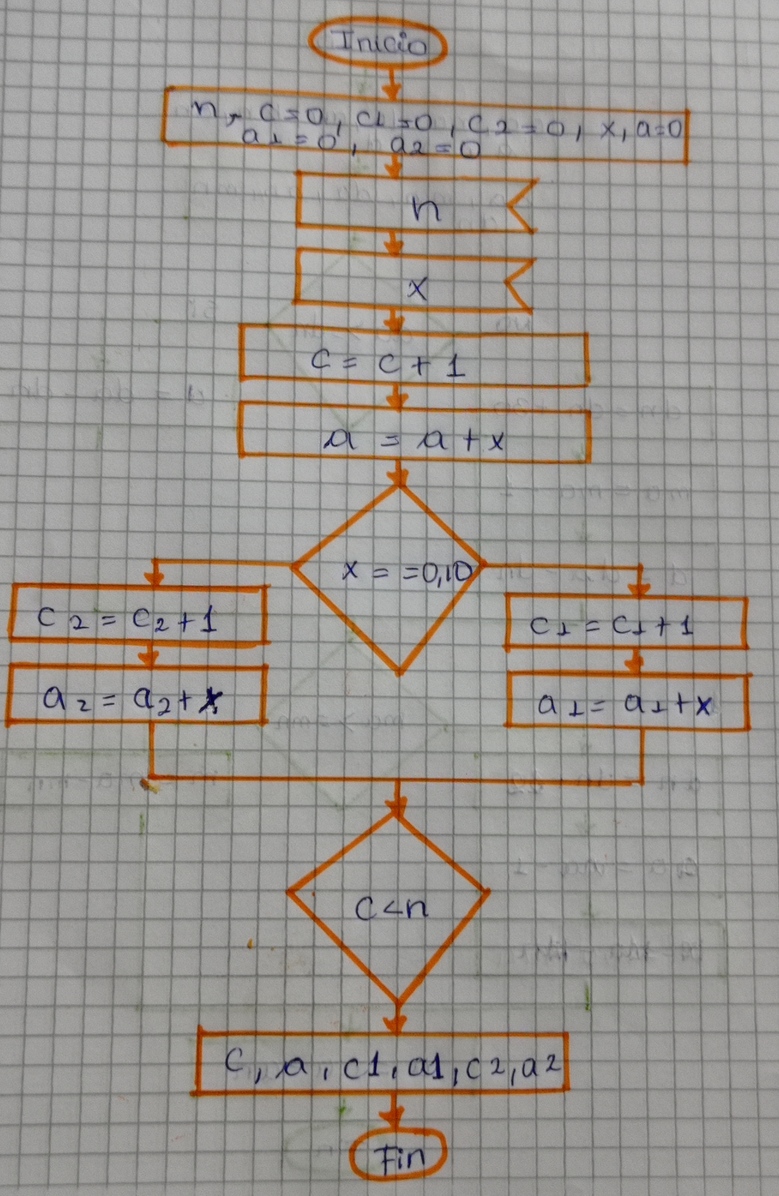 Inicio
n, c=0, c1=0, c2=0, x, a=0
a1=0, a2=0
n
x
c = c + 1
a = a + x
x = =0,10
c2 = c2+1
c1 = c1+1
a2 = a2+x
a1 = a1+x
c<n
c, a, c1, a1, c2, a2
Fin